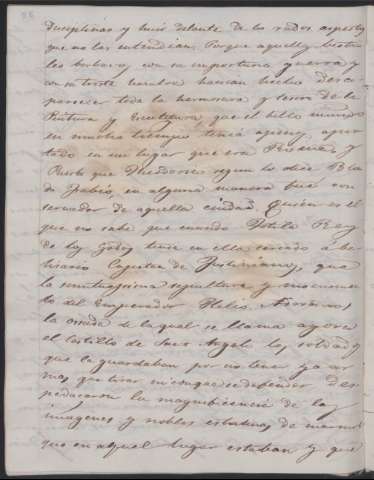 disciplinas y huir delante de los rudos aspectos
que no las entendian. Porque aquellos bestia
les barbaros con su importuna guerra y
con su torste hambre havian hecho desa
parecer toda la hermosura y tesoro de la
Pintura y Escultura, que el bello mundo
en muchos tiempos tenia ajuntado, apar
tado en un lugar que era Roma y
Puesto que Theodorico segun lo dice Bla
do Fabio, en alguna manera fue con
servador de aquella ciudad. Quien es el
que no sabe que cuando Totila Rey
de los Godos tenia en ella cercado á be
lisario Capitan de Justiniano, que
la suntuosisima sepultura y monumen
to del Emperador Helio Adriano,
la cual se llama ayora
el Castillo de Sant Angelo los soldados
que la guardaban por no tener ya ar
mas, que tirar ni conque se defender des
pedazaron la magnificencia de las
imagenes y nobles estatuas de marmol
que en aquel lugar estaban y que